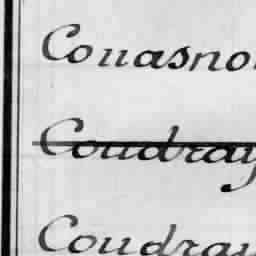 Couasno
Coudray
Coudray